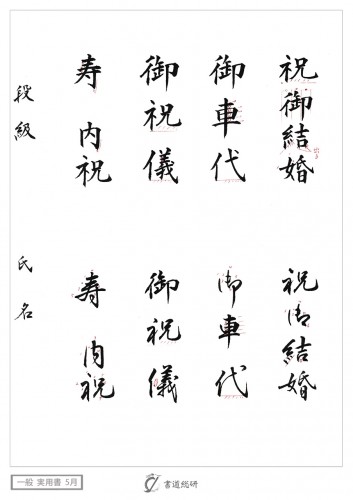 祝御結婚
御車代
御祝儀
寿 内祝
段級
祝御結婚
御車代
御祝儀
寿 内祝
氏名
一般 実用書 5月
書道総研